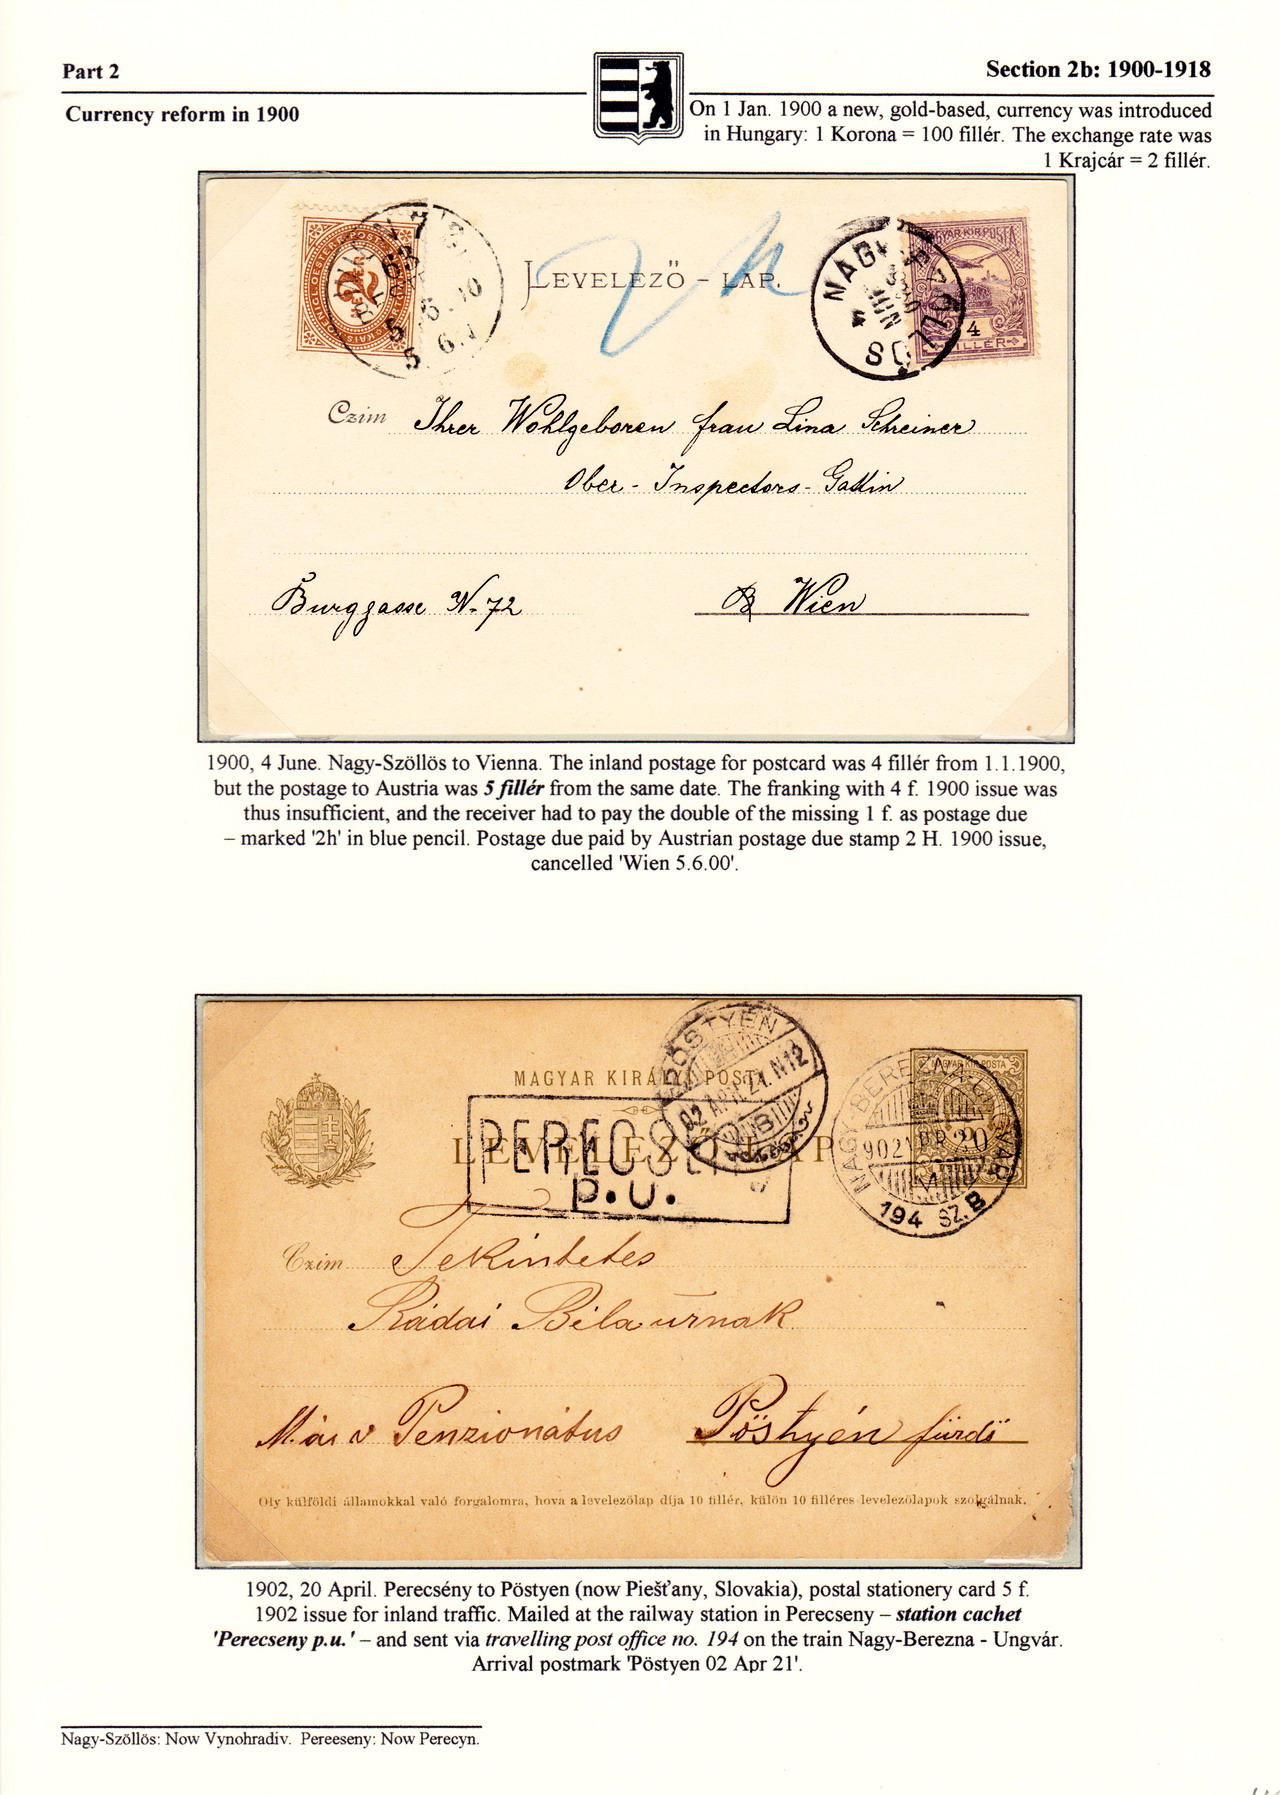 Part 2
Section 2b: 1900-1918
Currency reform in 1900
On 1 Jan. 1900 a new, gold-based, currency was introduced
in Hungary: 1 Korona = 100 fillér. The exchange rate was
1 Krajcár = 2 fillér.
2
MAGYAR KIR. POSTA
4
FILLÉR
NAGY-SZŐLLŐS
JUN
4
2h
LEVELEZŐ - LAP.
Czim Ihrer Wohlgeboren frau Lina Schreiner
Ober - Inspectors - Gattin
Burggasse N. 72 Wien
1900, 4 June. Nagy-Szöllös to Vienna. The inland postage for postcard was 4 fillér from 1.1.1900,
but the postage to Austria was 5 fillér from the same date. The franking with 4 f. 1900 issue was
thus insufficient, and the receiver had to pay the double of the missing 1 f. as postage due
– marked '2h' in blue pencil. Postage due paid by Austrian postage due stamp 2 H. 1900 issue,
cancelled 'Wien 5.6.00'.
PÖSTYÉN
02 APR. 21. N12
B
MAGYAR KIRÁLYI POSTA
LEVELEZŐ-LAP
PERECSENY
P.U.
NAGY-BEREZNA-UNGVÁR
902 APR 20
M
194 SZ. B
Czim Tekintetes
Rádai Béla urnak
Máv Penzionátus Pöstyén fürdő
Oly külföldi államokkal való forgalomra, hova a levelezőlap díja 10 fillér, külön 10 filléres levelezőlapok szolgálnak.
1902, 20 April. Perecsény to Pöstyen (now Piešťany, Slovakia), postal stationery card 5 f.
1902 issue for inland traffic. Mailed at the railway station in Perecseny – station cachet
'Perecseny p.u.' – and sent via travelling post office no. 194 on the train Nagy-Berezna - Ungvár.
Arrival postmark 'Pöstyen 02 Apr 21'.
Nagy-Szöllös: Now Vynohradiv. Pereeseny: Now Perecyn.